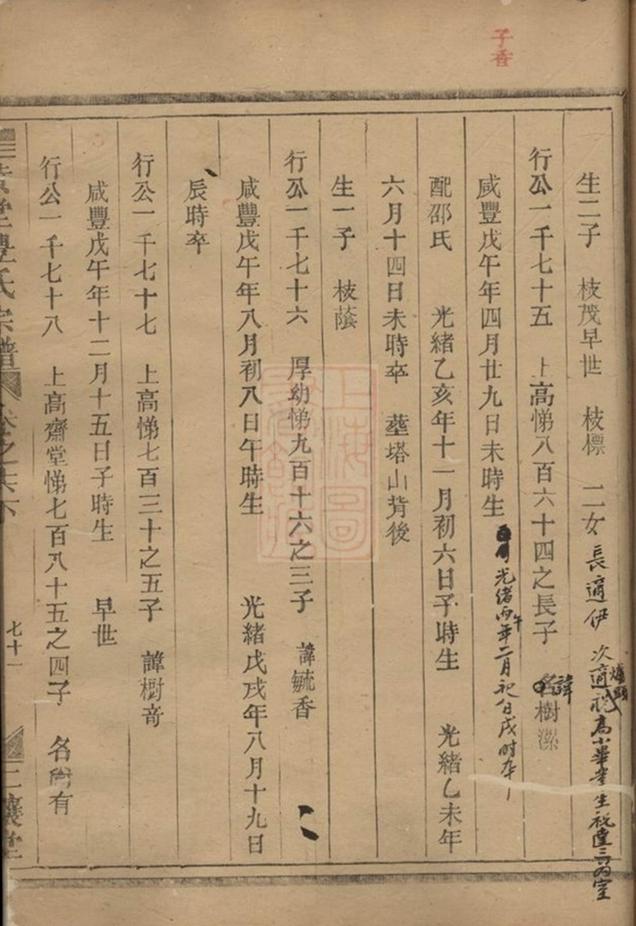 子香
生二子　枝茂早世　枝標　二女長適伊　次適祝高小畢業生祝達三為室
行公一千七十五　上高悌八百六十四之長子　諱樹滋
咸豐戊午年四月廿九日未時生　光緒丙午年二月初八日戌時卒
配邵氏　光緒乙亥年十一月初六日子時生　光緒乙未年
六月十四日未時卒　塟塔山背後
生一子　枝蔭
行公一千七十六　厚幼悌九百十六之三子　諱毓香
咸豐戊午年八月初八日午時生　光緒戊戌年八月十九日
辰時卒
行公一千七十七　上高悌七百三十之五子　諱樹奇
咸豐戊午年十二月十五日子時生　早世
行公一千七十八　上高齋堂悌七百八十五之四子　名樹有
氏宗譜　卷之六下　七十一　三讓堂